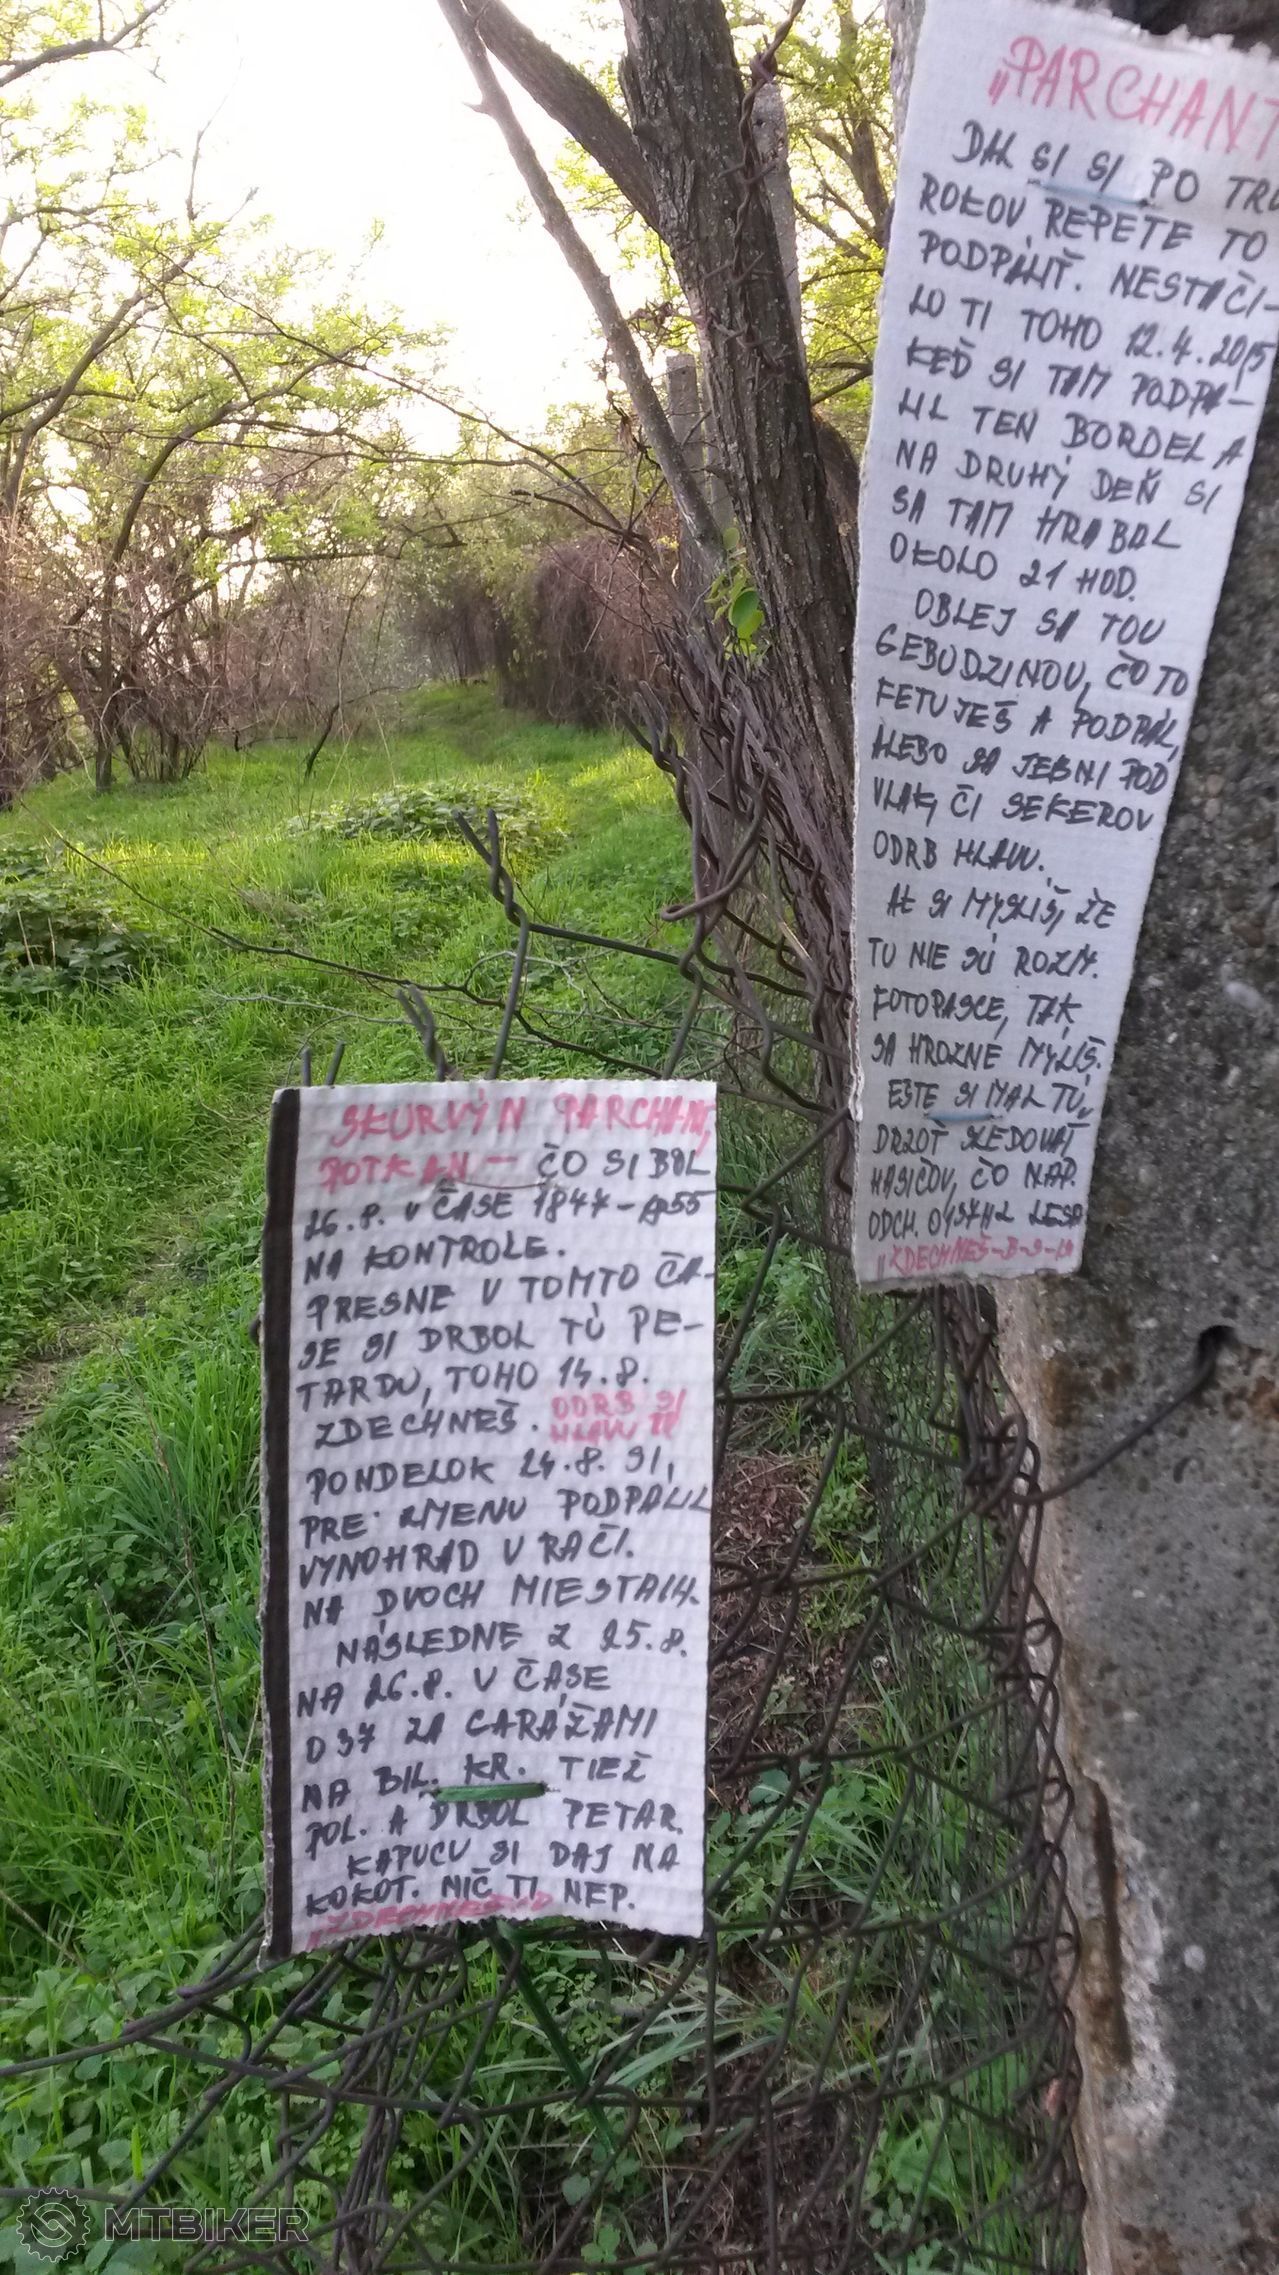 „PARCHANT
DAL SI SI PO TRO
ROKOV REPETE TO
PODPÁLIŤ. NESTAČI-
LO TI TOHO 12.4.2015
KEĎ SI TAM PODPA-
LIL TEN BORDEL A
NA DRUHÝ DEŇ SI
SA TAM HRABAL
OKOLO 21 HOD.
OBLEJ SA TOU
GEBUDZINOU, ČO TO
FETUJEŠ A PODPÁL,
ALEBO SA JEBNI POD
VLAK, ČI SEKEROV
ODRB HLAVU.
AK SI MYSLIŠ, ŽE
TU NIE SÚ ROZM.
FOTOPASCE, TAK
SA HROZNE MÝLIŠ.
EŠTE SI MAL TÚ
DRZOŤ SLEDOVAŤ
HASIČOV, ČO NAP.
ODCH. LESA
„ZDECHNEŠ-B-S-
SKURVÝN PARCHANT,
POTKAN — ČO SI BOL
26.8. V ČASE 1847-1855
NA KONTROLE.
PRESNE V TOMTO ČA-
SE SI DRBOL TÚ PE-
TARDU, TOHO 14.8.
ZDECHNEŠ. ODRB SI
HLAVU
PONDELOK 24.8. SI,
PRE ZMENU PODPALIL
VYNOHRAD V RAČI.
NA DVOCH MIESTACH.
NÁSLEDNE Z 25.8.
NA 26.8. V ČASE
037 ZA GARÁŽAMI
NA BIL. KR. TIEŽ
POL. A DRBOL PETAR.
KAPUCU SI DAJ NA
KOKOT. NIČ TI NEP.
MTBIKER